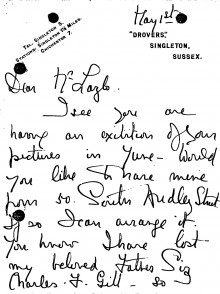 May 1st
TEL. SINGLETON 3.
STATION: SINGLETON 1½ MILES.
CHICHESTER 7.
"DROVERS,"
SINGLETON,
SUSSEX.
Dear Mr Laszlo.
I see you are
having an exibition of your
pictures in June - Would
you like to have mine
from 50. South Audley Street
If so I can arrange it.
You know I have lost
my beloved Father Sir
Charles. F. Gill - so